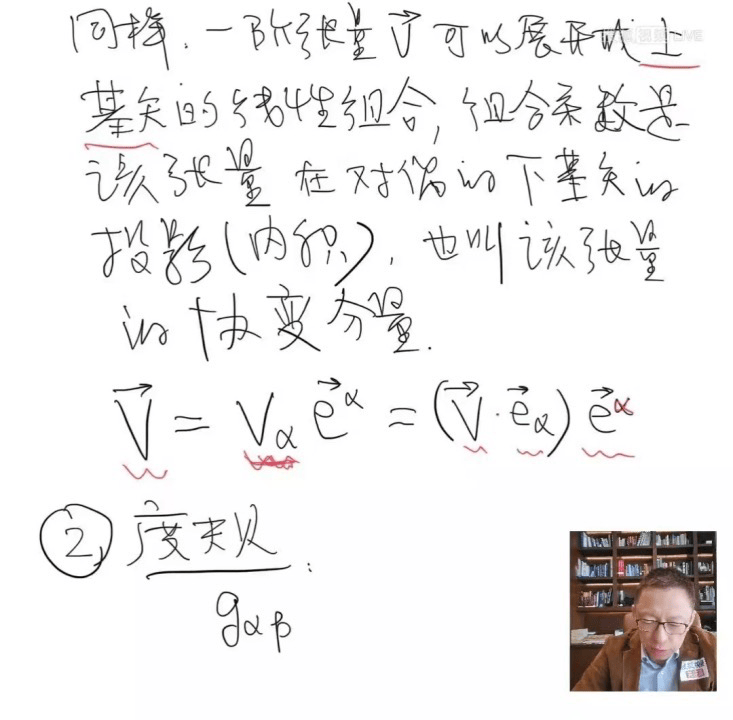 同样,一阶张量 V⃗ 可以展开成上
基矢的线性组合,组合系数是
该张量在对偶的下基矢的
投影(内积),也叫该张量
的协变分量.
V⃗ = V_α e⃗^α = (V⃗ · e⃗_α) e⃗^α
② 度规:
g_αβ